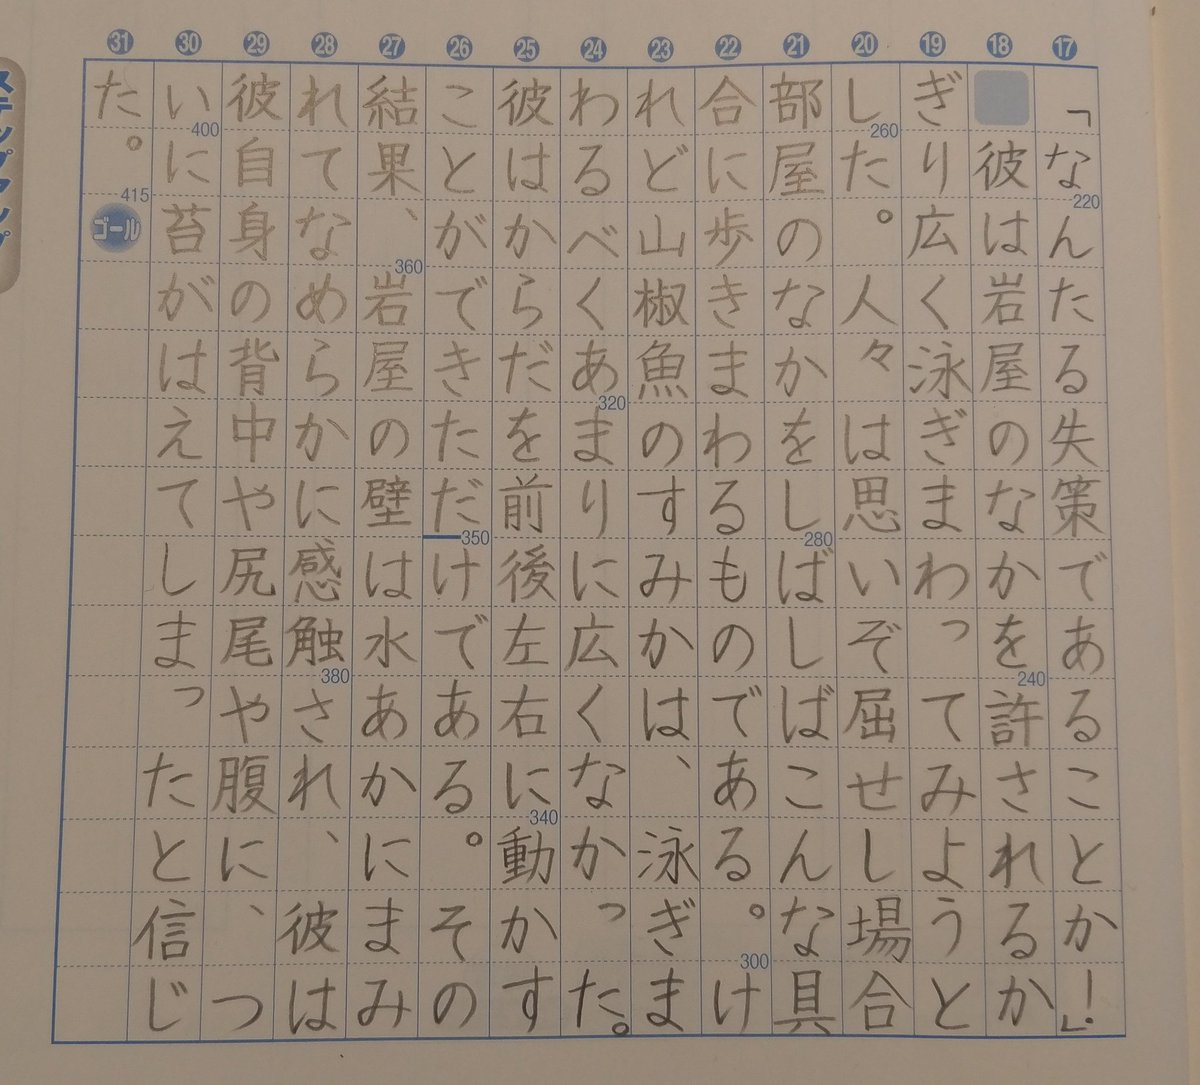 ⑰⑱⑲⑳㉑㉒㉓㉔㉕㉖㉗㉘㉙㉚㉛
「なんたる失策であることか!」
彼は岩屋のなかを許されるか
ぎり広く泳ぎまわってみようと
した。人々は思いぞ屈せし場合
部屋のなかをしばしばこんな具
合に歩きまわるものである。け
れど山椒魚のすみかは、泳ぎま
わるべくあまりに広くなかった。
彼はからだを前後左右に動かす
ことができただけである。その
結果、岩屋の壁は水あかにまみ
れてなめらかに感触され、彼は
彼自身の背中や尻尾や腹に、つ
いに苔がはえてしまったと信じ
た。
220
240
260
280
300
320
340
350
360
380
400
415
ゴール
ステップアップ